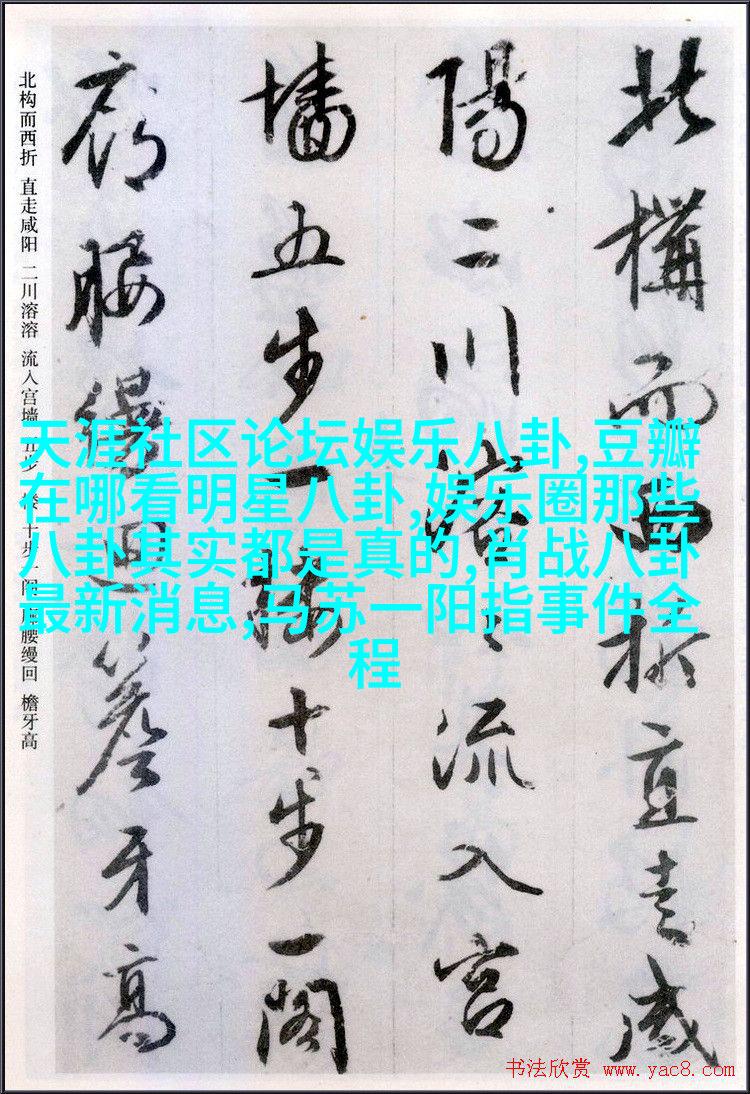 北構而西折直走咸
陽二川溶々流入宮
墻五步一樓十步一閣
廊腰縵迴簷牙高
北构而西折 直走咸阳 二川溶溶 流入宫墙 五步一楼 十步一阁 廊腰缦回 檐牙高
天涯社区论坛娱乐八卦,豆瓣
在哪看明星八卦,娱乐圈那些
八卦其实都是真的,肖战八卦
最新消息,马苏一阳指事件全
程
书法欣赏 www.yac8.com